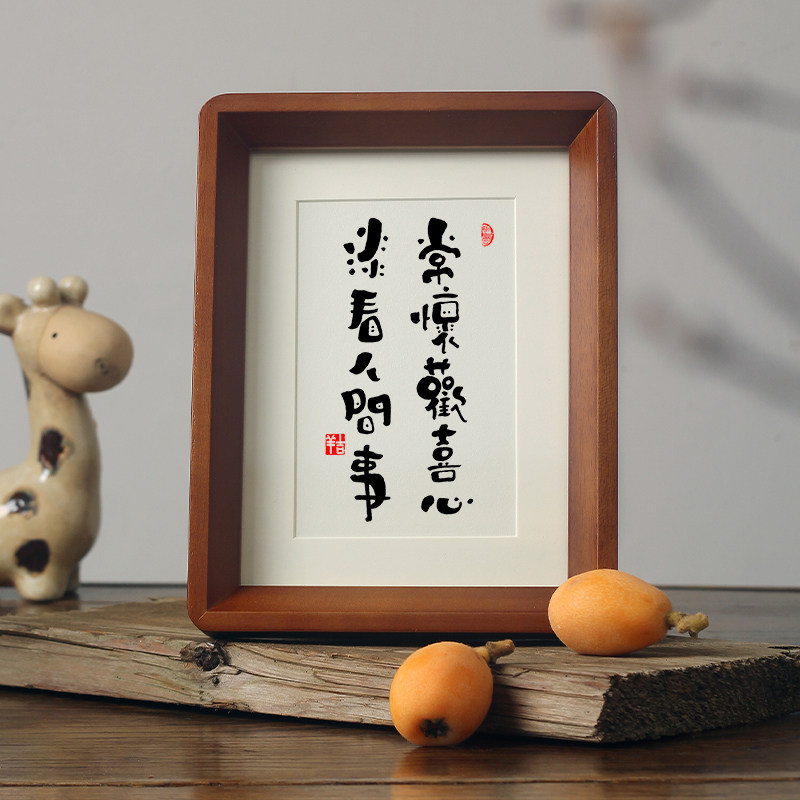 常懷歡喜心
淡看人間事
吉羊